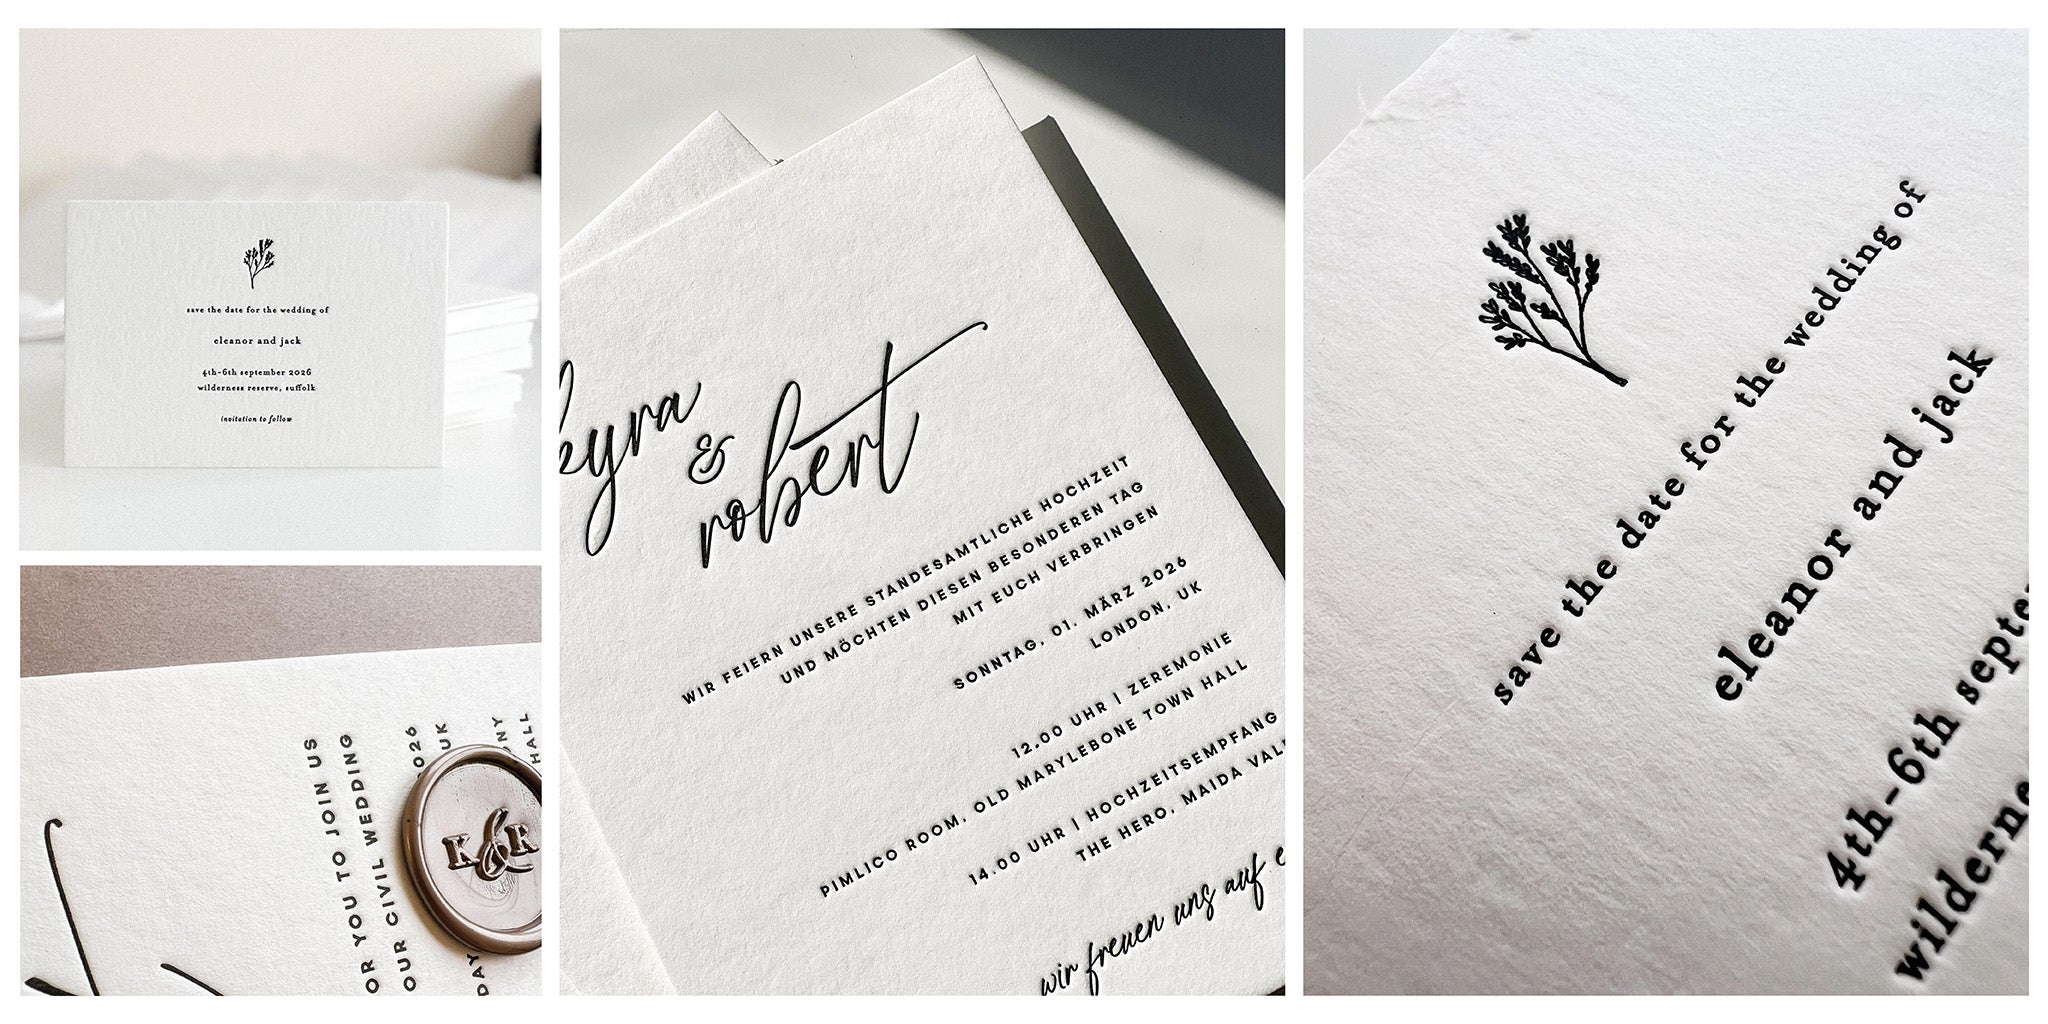 save the date for the wedding of
eleanor and jack
4th-6th september 2026
wilderness reserve, suffolk
invitation to follow
OR YOU TO JOIN US
OUR CIVIL WEDDING
2026
UK
ONY
HALL
DAY
K&R
kyra
&
robert
WIR FEIERN UNSERE STANDESAMTLICHE HOCHZEIT
UND MÖCHTEN DIESEN BESONDEREN TAG
MIT EUCH VERBRINGEN
SONNTAG, 01. MÄRZ 2026
LONDON, UK
12.00 UHR | ZEREMONIE
PIMLICO ROOM, OLD MARYLEBONE TOWN HALL
14.00 UHR | HOCHZEITSEMPFANG
THE HERO, MAIDA VAL
wir freuen uns auf e
save the date for the wedding of
eleanor and jack
4th-6th septe
wilderne